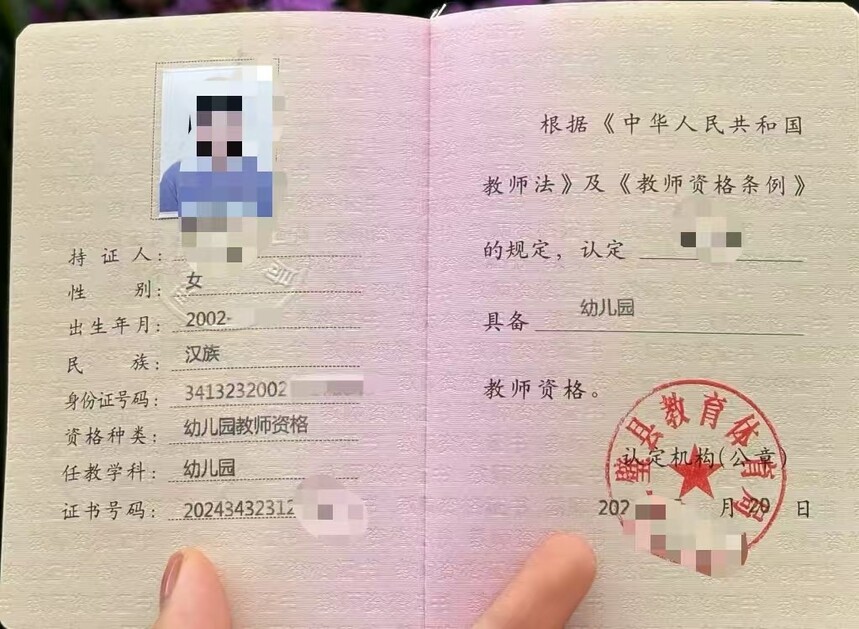 持证人：
性别：女
出生年月：2002-
民族：汉族
身份证号码：3413232002
资格种类：幼儿园教师资格
任教学科：幼儿园
证书号码：20243432312
根据《中华人民共和国
教师法》及《教师资格条例》
的规定，认定
具备 幼儿园
教师资格。
县教育体育局
认定机构(公章)
202 月20日